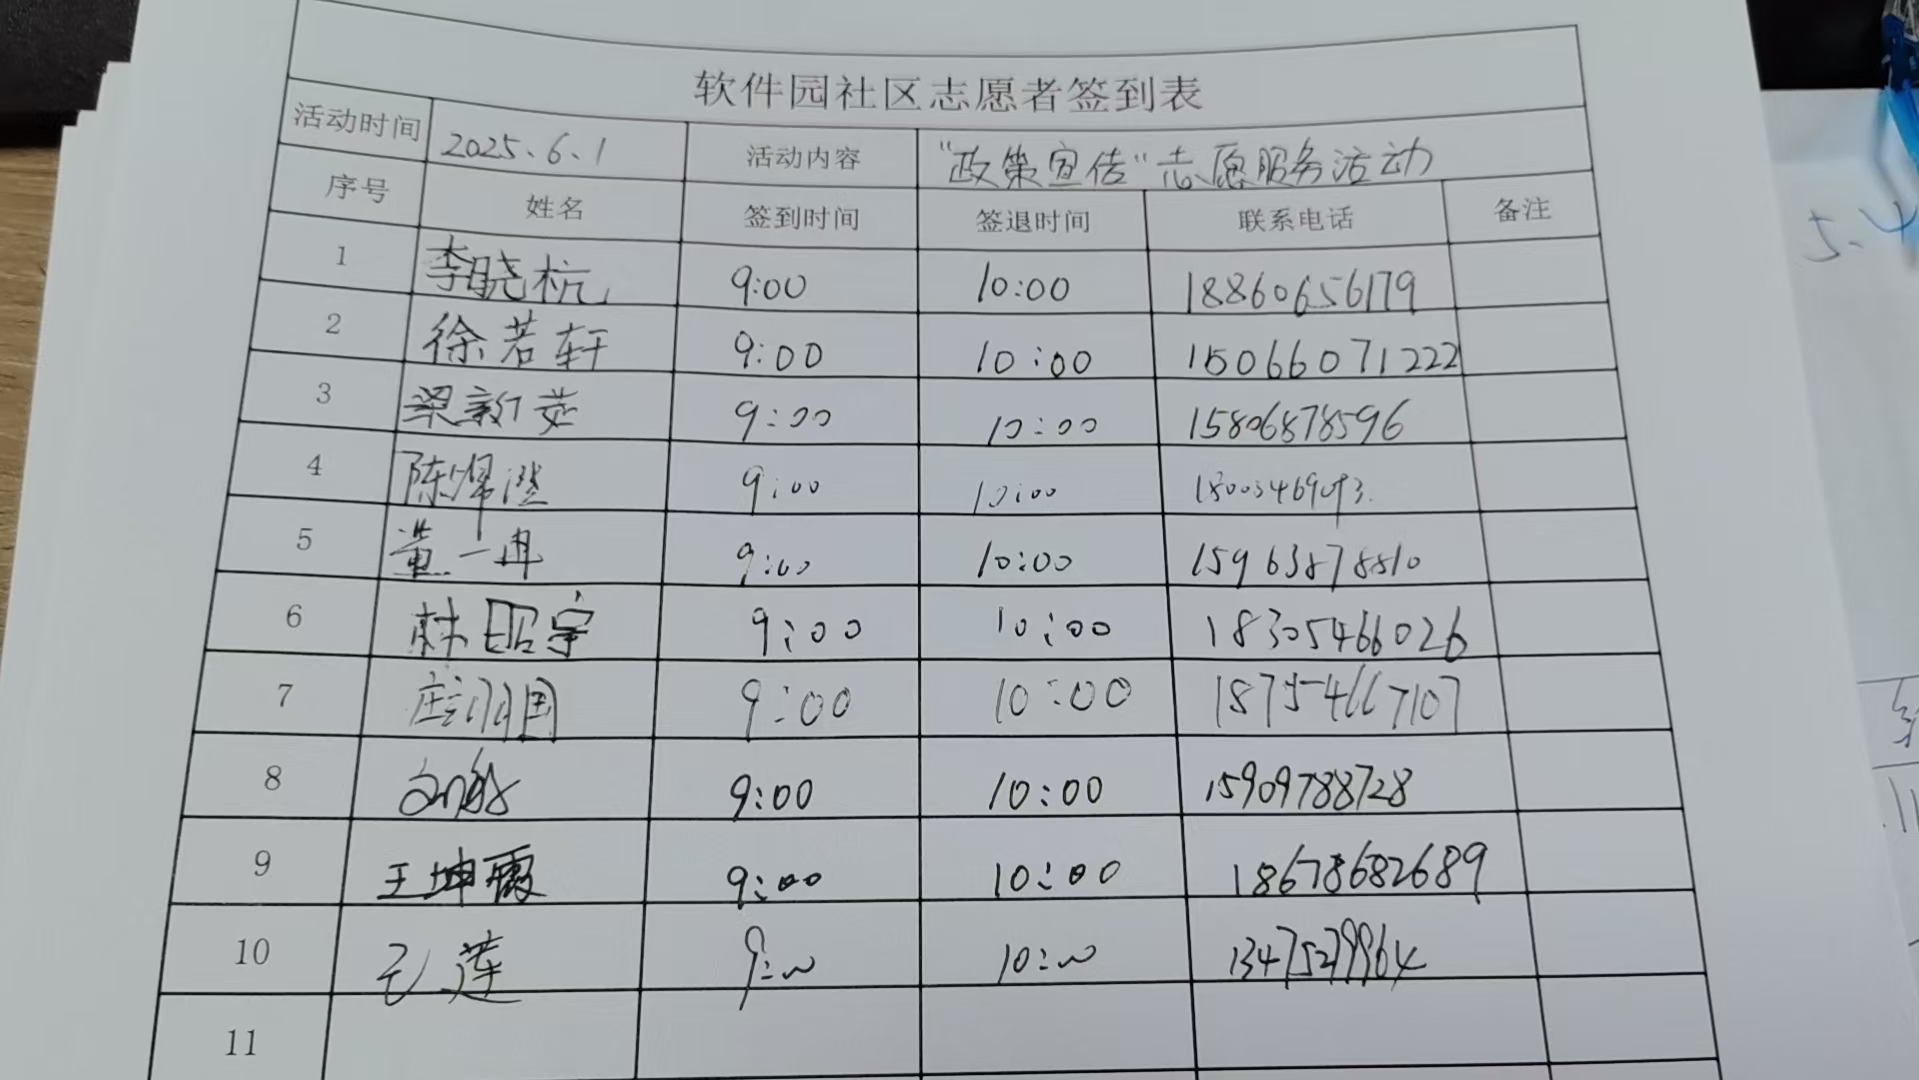 软件园社区志愿者签到表
活动时间 2025.6.1 活动内容 "政策宣传"志愿服务活动
序号 姓名 签到时间 签退时间 联系电话 备注
1 李晓杭 9:00 10:00 18860656179
2 徐若轩 9:00 10:00 15066071222
3 梁新茹 9:00 10:00 15806878596
4 陈 澄 9:00 10:00
5 黄一冉 9:00 10:00 15963878810
6 林昭宇 9:00 10:00 18305466026
7 庄 国 9:00 10:00 18754667107
8 9:00 10:00 15909788728
9 王坤霞 9:00 10:00 18678682689
10 莲 9:00 10:00 13475279964
11
5.4